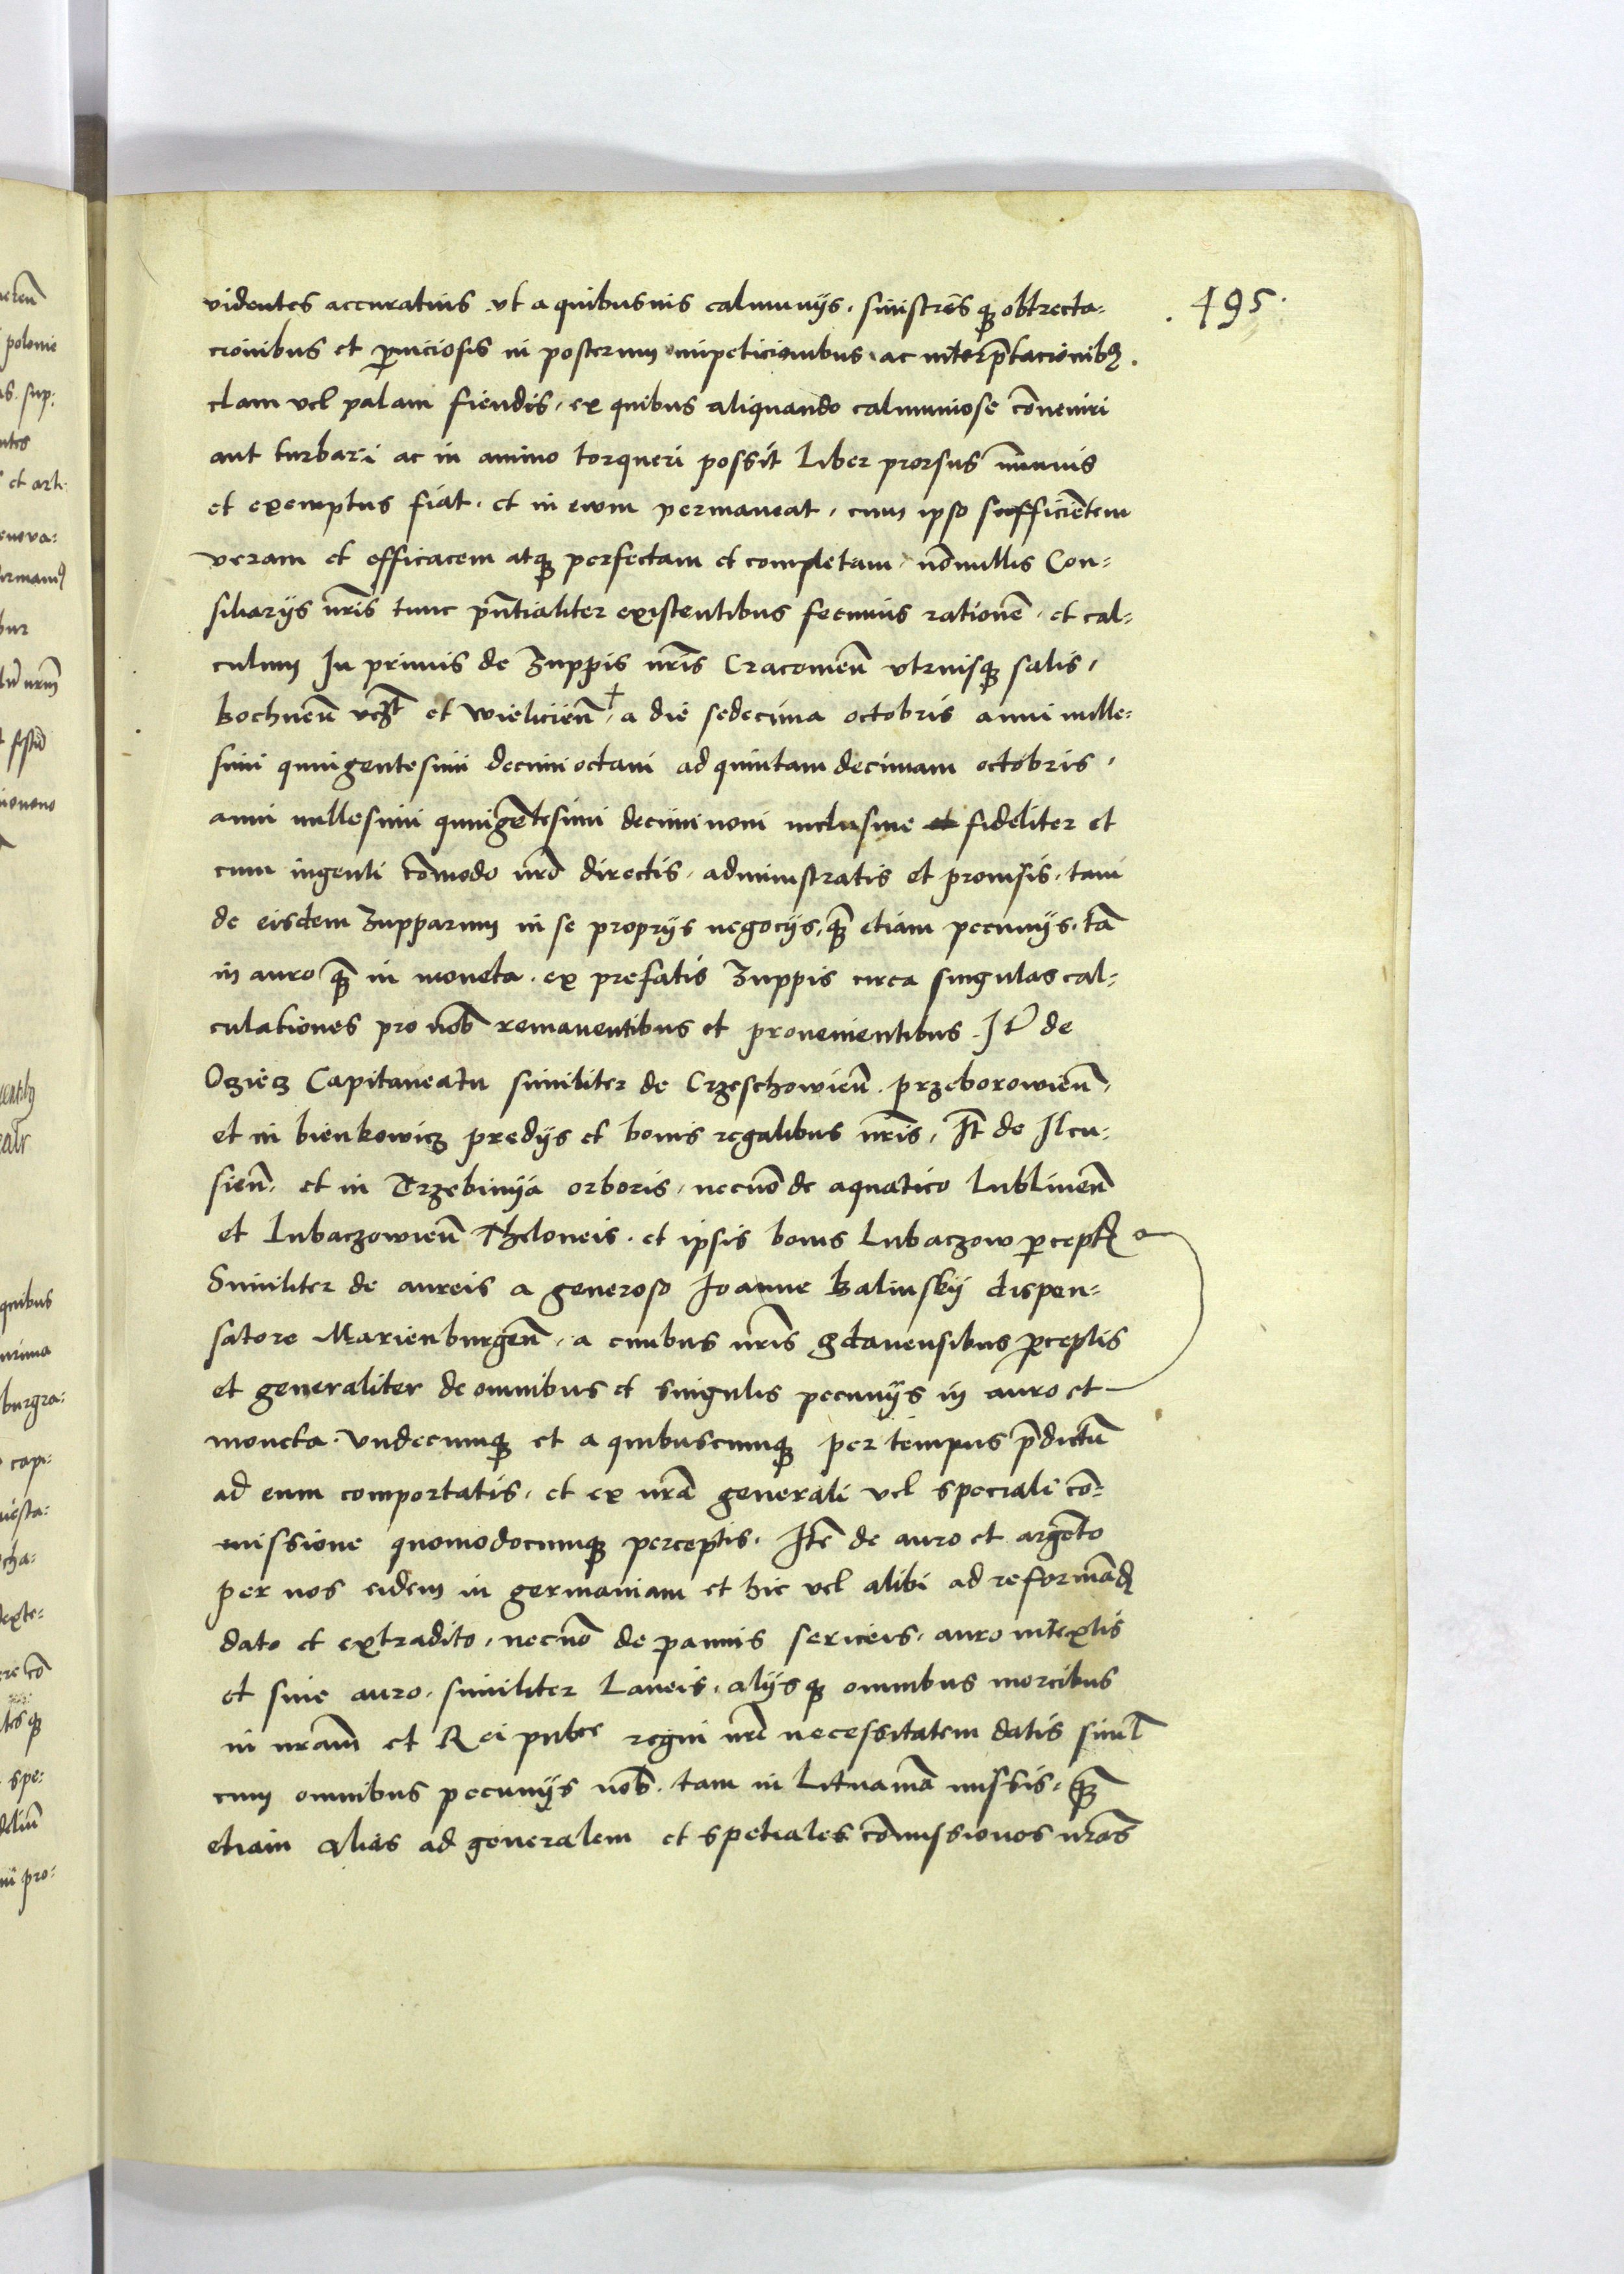 495.
videntes accuratius ut a quibusuis calumnijs. sinistreis q obtrecta-
cionibus et pniciosis in posterum impeticionibus. ac interptacionib.
clam vel palam fiendis, ex quibus aliquando calumniose conveniri
aut turbari ac in animo torqueri possit Liber prorsus immunis
et exemptus fiat. et in evum permaneat, cum ipso sufficientem
veram et efficacem atq perfectam et completam, nonnullis Con-
siliarijs nris tunc pntialiter existentibus fecimus rationem. et cal-
culum In primis de Zuppis nris Cracovien utriusq salis,
Bochnen vczt et Wielicien, a die sedecima octobris anni mille-
simi quingentesimi decimi octavi ad quintam decimam octobris,
anni millesimi quingentesimi decimi noni inclusive et fideliter et
cum ingenti commodo nro directis, administratis et provisis, tam
de eisdem Zupparum in se proprijs negocijs, q etiam pecunijs. tam
in auro q in moneta. ex prefatis Zuppis circa singulas cal-
culationes pro nob remanentibus et provenientibus. It de
Oziecz Capitaneatu similiter de Crzeschowien. przeborowien,
et in bienkowicz predijs et bonis regalibus nris, It de Ilcu-
sien. et in Trzebinija orboris, necno de aquatico Lublinen
et Lubaczowien Theloneis. et ipsis bonis Lubaczow pcept
Similiter de aureis a generoso Joanne Balinskij dispen-
satore Marienburgen, a civibus nris gdanensibus pceptis
et generaliter de omnibus et singulis pecunijs in auro et
moneta. undecumq et a quibuscumq per tempus pdictum
ad eum comportatis, et ex nra generali vel speciali com-
missione quomodocumq perceptis. Ite de auro et argento
per nos eidem in germaniam et hic vel alibi ad reformand
dato et extradito, necno de pannis sericeis, auro intextis
et sine auro. similiter Laneis, alijsq omnibus mercibus
in nram et Rei pubce regni nri necessitatem datis simul
cum omnibus pecunijs nob. tam in Lituaniam missis, q
etiam alias ad generalem et speciales commissiones nras